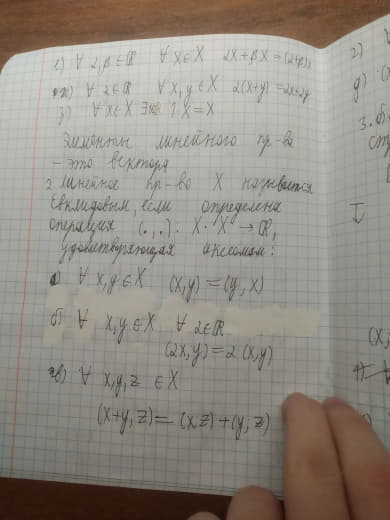 е) ∀ α, β ∈ ℝ ∀ x ∈ X αX + βX = (α+β)x
ж) ∀ α ∈ ℝ ∀ x, y ∈ X α(x+y) = αx+αy
з) ∀ x ∈ X 1·X = X
Элементы линейного пр-ва
– это вектора
2. Линейное пр-во X называется
Евклидовым, если определена
операция (. , .) . X · X → ℝ,
удовлетворяющая аксиомам:
а) ∀ x, y ∈ X (x, y) = (y, x)
б) ∀ x, y ∈ X ∀ α ∈ ℝ
(αx, y) = α (x, y)
в) ∀ x, y, z ∈ X
(x+y, z) = (x, z) + (y, z)
2)
д)
3.
I
(x,